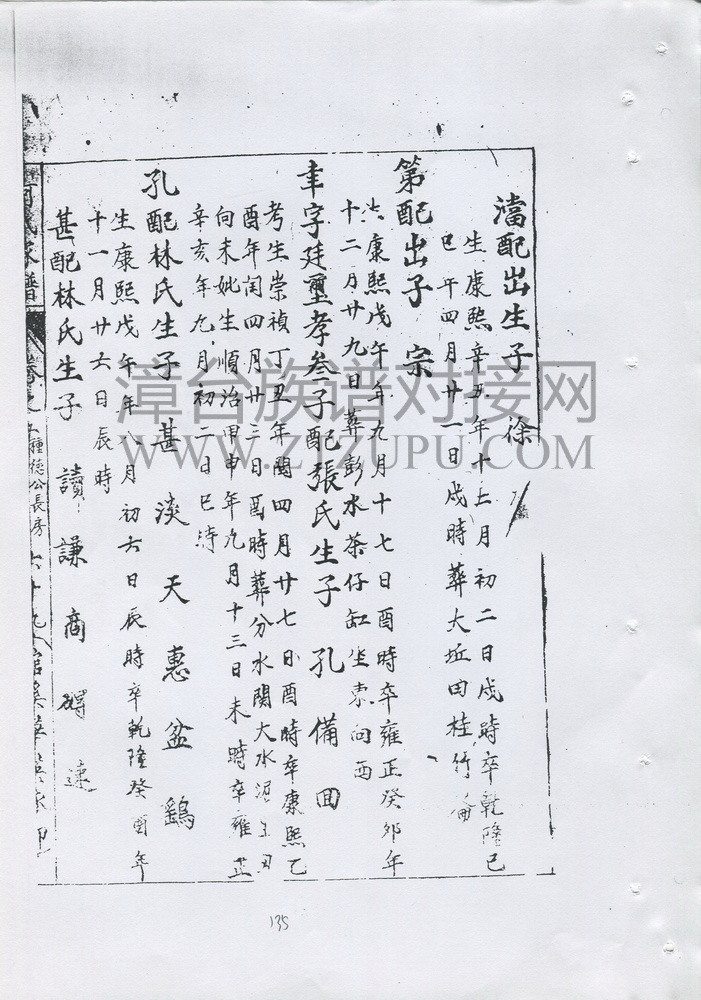 澢配出生子 徐
生康熙辛五年十二月初二日戌時卒乾隆己
巳年四月廿一日戌時葬大坵田桂竹
第配出子 宗
康熙戊午年九月十七日酉時卒雍正癸卯年
十二月廿九日葬彭水茶仔缸坐東向西
聿字廷壐孝叁子配張氏生子 孔 備 回
考生崇禎丁丑年閏四月廿七日酉時卒康熙乙
酉年閏四月廿三日酉時葬分水關大水坭坐丑
向未妣生順治甲申年九月十三日未時卒雍正
辛亥年九月初二日巳時
孔配林氏生子 甚 淡 天 惠 盆 鷄
生康熙戊午年八月初六日辰時卒乾隆癸酉年
十一月廿六日辰時
甚配林氏生子 讀 謙 商 速
家譜
種德公長房
漳台族谱对接网
WWW.ZTZUPU.COM
135